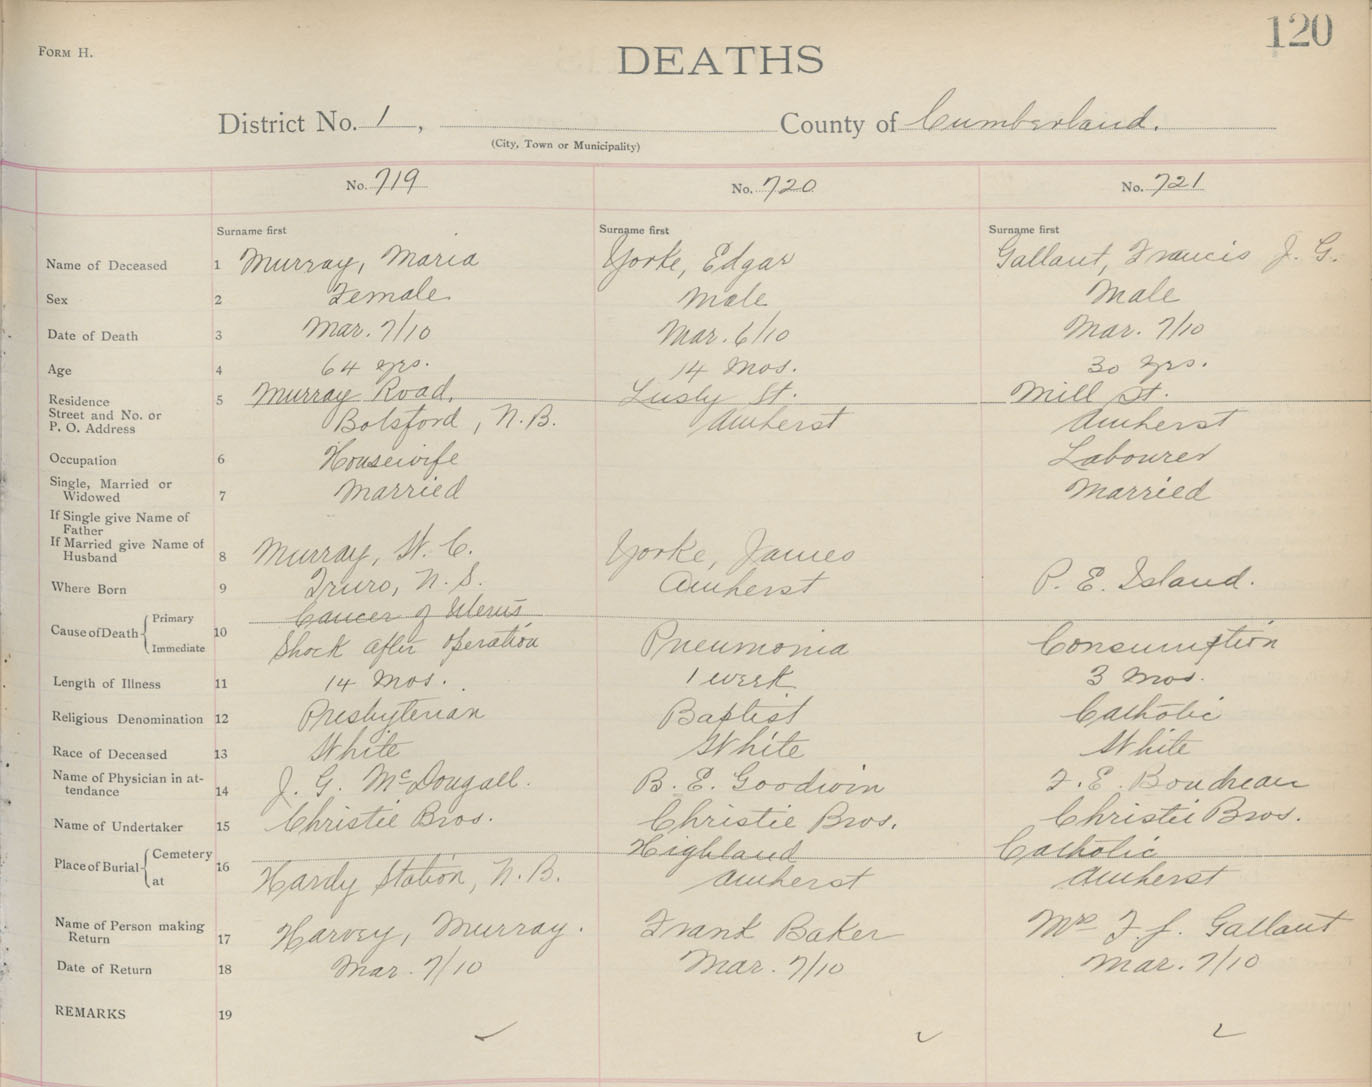 120
FORM H.
DEATHS
District No. 1, County of Cumberland.
(City, Town or Municipality)
No. 719 No. 720 No. 721
Surname first Surname first Surname first
Name of Deceased 1 Murray, Maria Yorke, Edgar Gallant, Francis J. G.
Sex 2 Female Male Male
Date of Death 3 Mar. 7/10 Mar. 6/10 Mar. 7/10
Age 4 64 yrs. 14 Mos. 30 yrs.
Residence 5 Murray Road, Lusby St. Mill St.
Street and No. or
P. O. Address Botsford, N.B. Amherst Amherst
Occupation 6 Housewife Labourer
Single, Married or
Widowed 7 Married Married
If Single give Name of
Father
If Married give Name of
Husband 8 Murray, W. C. Yorke, James
Where Born 9 Truro, N.S. Amherst P. E. Island.
Cause of Death 10 Primary Cancer of Uterus
Immediate Shock after operation Pneumonia Consumption
Length of Illness 11 14 Mos. 1 week 3 Mos.
Religious Denomination 12 Presbyterian Baptist Catholic
Race of Deceased 13 White White White
Name of Physician in at-
tendance 14 J. G. McDougall. B. E. Goodwin F. E. Boudreau
Name of Undertaker 15 Christie Bros. Christie Bros. Christie Bros.
Place of Burial 16 Cemetery Highland Catholic
at Hardy Station, N.B. Amherst Amherst
Name of Person making
Return 17 Harvey, Murray. Frank Baker Mrs F. J. Gallant
Date of Return 18 Mar. 7/10 Mar. 7/10 Mar. 7/10
REMARKS 19